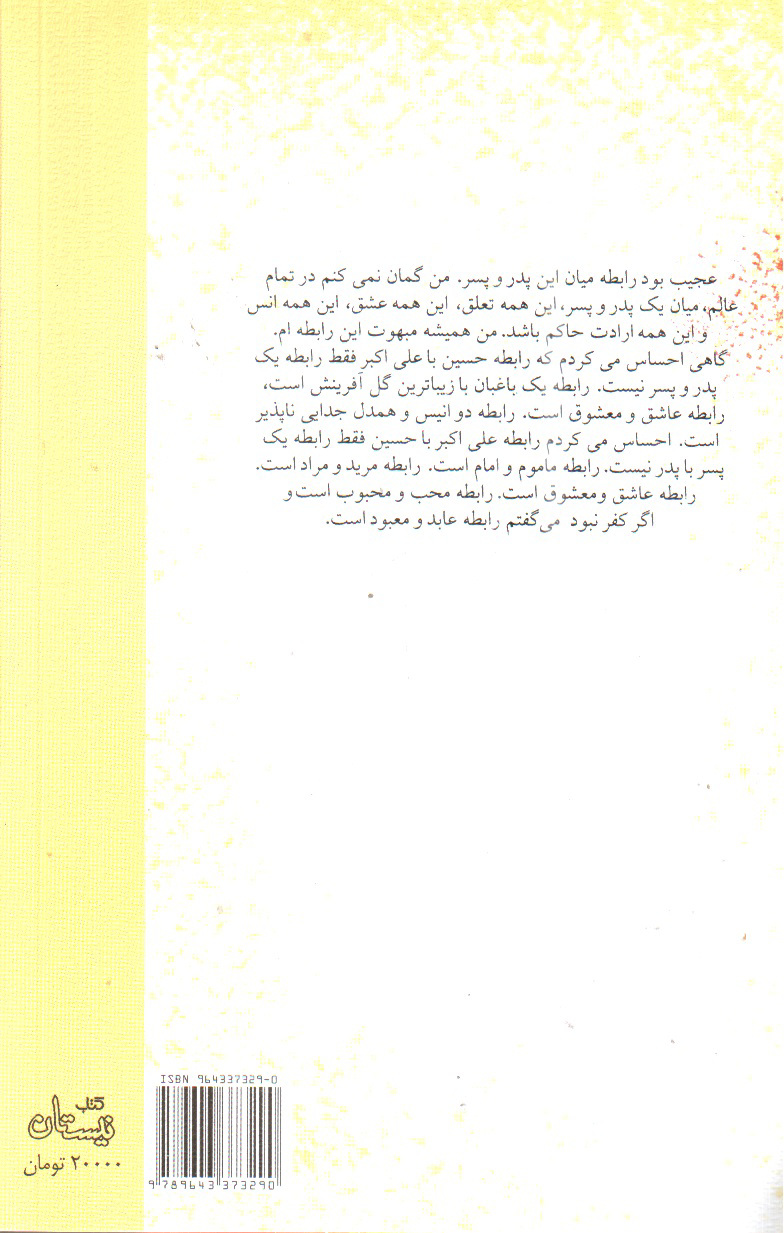 عجیب بود رابطه میان این پدر و پسر. من گمان نمی کنم در تمام
عالم، میان یک پدر و پسر، این همه تعلق، این همه عشق، این همه انس
و این همه ارادت حاکم باشد. من همیشه مبهوت این رابطه ام.
گاهی احساس می کردم که رابطه حسین با علی اکبر فقط رابطه یک
پدر و پسر نیست. رابطه یک باغبان با زیباترین گل آفرینش است،
رابطه عاشق و معشوق است. رابطه دو انیس و همدل جدایی ناپذیر
است. احساس می کردم رابطه علی اکبر با حسین فقط رابطه یک
پسر با پدر نیست. رابطه ماموم و امام است. رابطه مرید و مراد است.
رابطه عاشق ومعشوق است. رابطه محب و محبوب است و
اگر کفر نبود می‌گفتم رابطه عابد و معبود است.
ISBN 964337329-0
9 789643 373290
کتاب
نیستان
۲۰۰۰۰ تومان